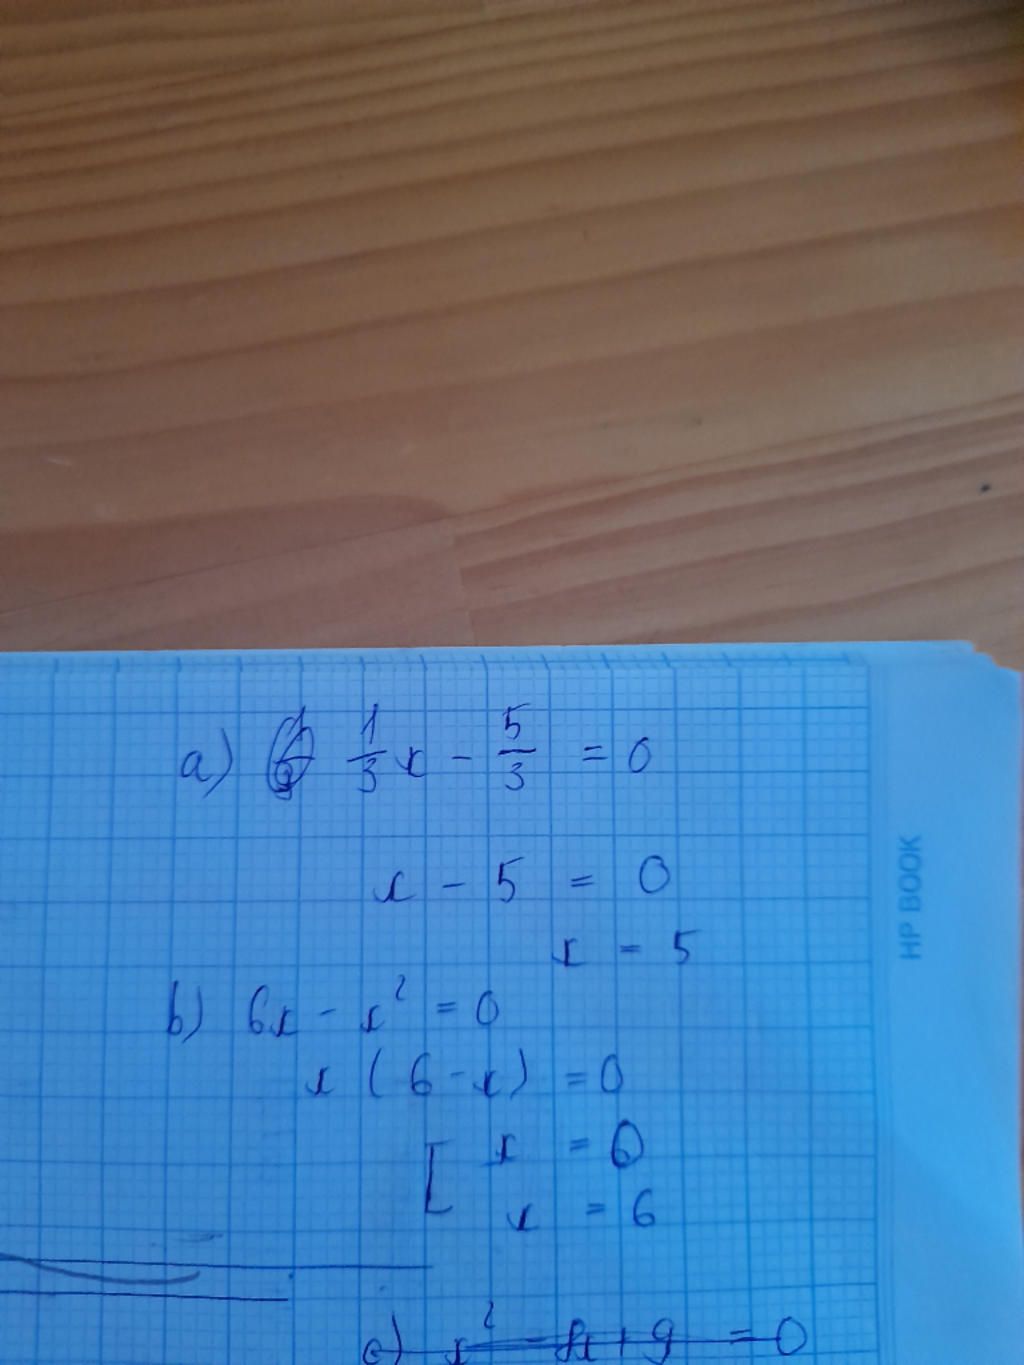 a) 1/3 x - 5/3 = 0
x - 5 = 0
x = 5
b) 6x - x² = 0
x (6 - x) = 0
[ x = 0
x = 6
HP BOOK